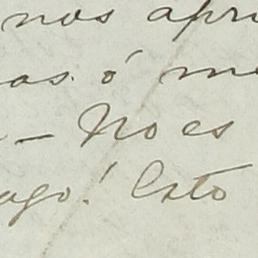 nos apri
as ó me
— No es
ago! Esto